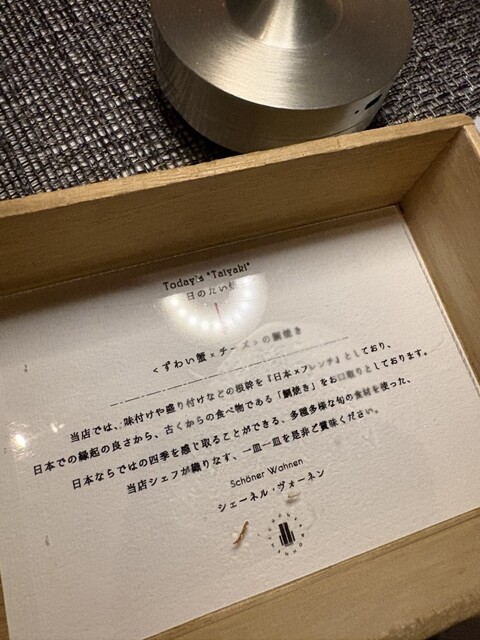 Today's "Taiyaki"
日のたい
<ずわい蟹×チーズ>の鯛焼き
当店では、味付けや盛り付けなどの根幹を『日本×フレンチ』としており、
日本での縁起の良さから、古くからの食べ物である「鯛焼き」をお口取りとしております。
日本ならではの四季を感じ取ることができる、多種多様な旬の食材を使った、
当店シェフが織りなす、一皿一皿を是非ご賞味ください。
Schöner Wohnen
シェーネル・ヴォーネン